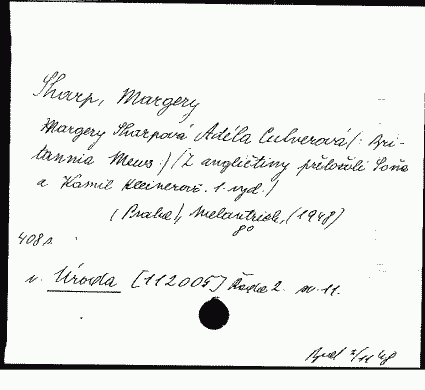 Sharp, Margery
Margery Sharpová Adéla Culverová /: Bri-
tannia Mews :/ / Z angličtiny přeložili Soňa
a Kamil 1. vyd. /
(Praha), Melantrich, (1948)
8°
408 s.
v. Úroda [112005] Řada 2. sv. 11.